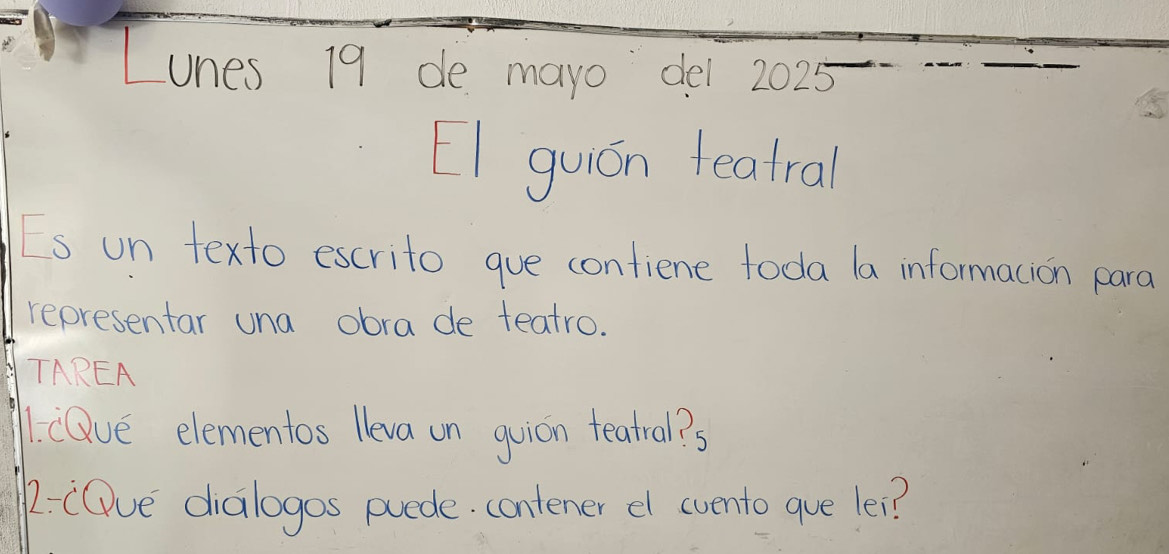 Lunes 19 de mayo del 2025
El guión teatral
Es un texto escrito que contiene toda la información para
representar una obra de teatro.
TAREA
1.-¿Qué elementos lleva un guión teatral?5
2.-¿Qué diálogos puede contener el cuento que leí?